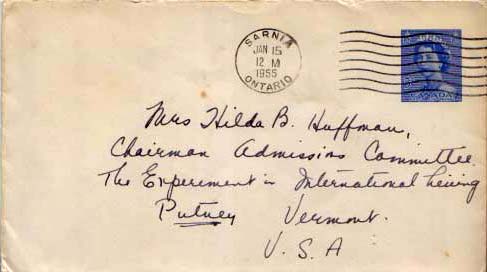 SARNIA
JAN 15
12 M
1955
ONTARIO
CANADA
Mrs Hilda B. Huffman,
Chairman Admissions Committee
The Experiment in International Living
Putney Vermont.
U.S.A